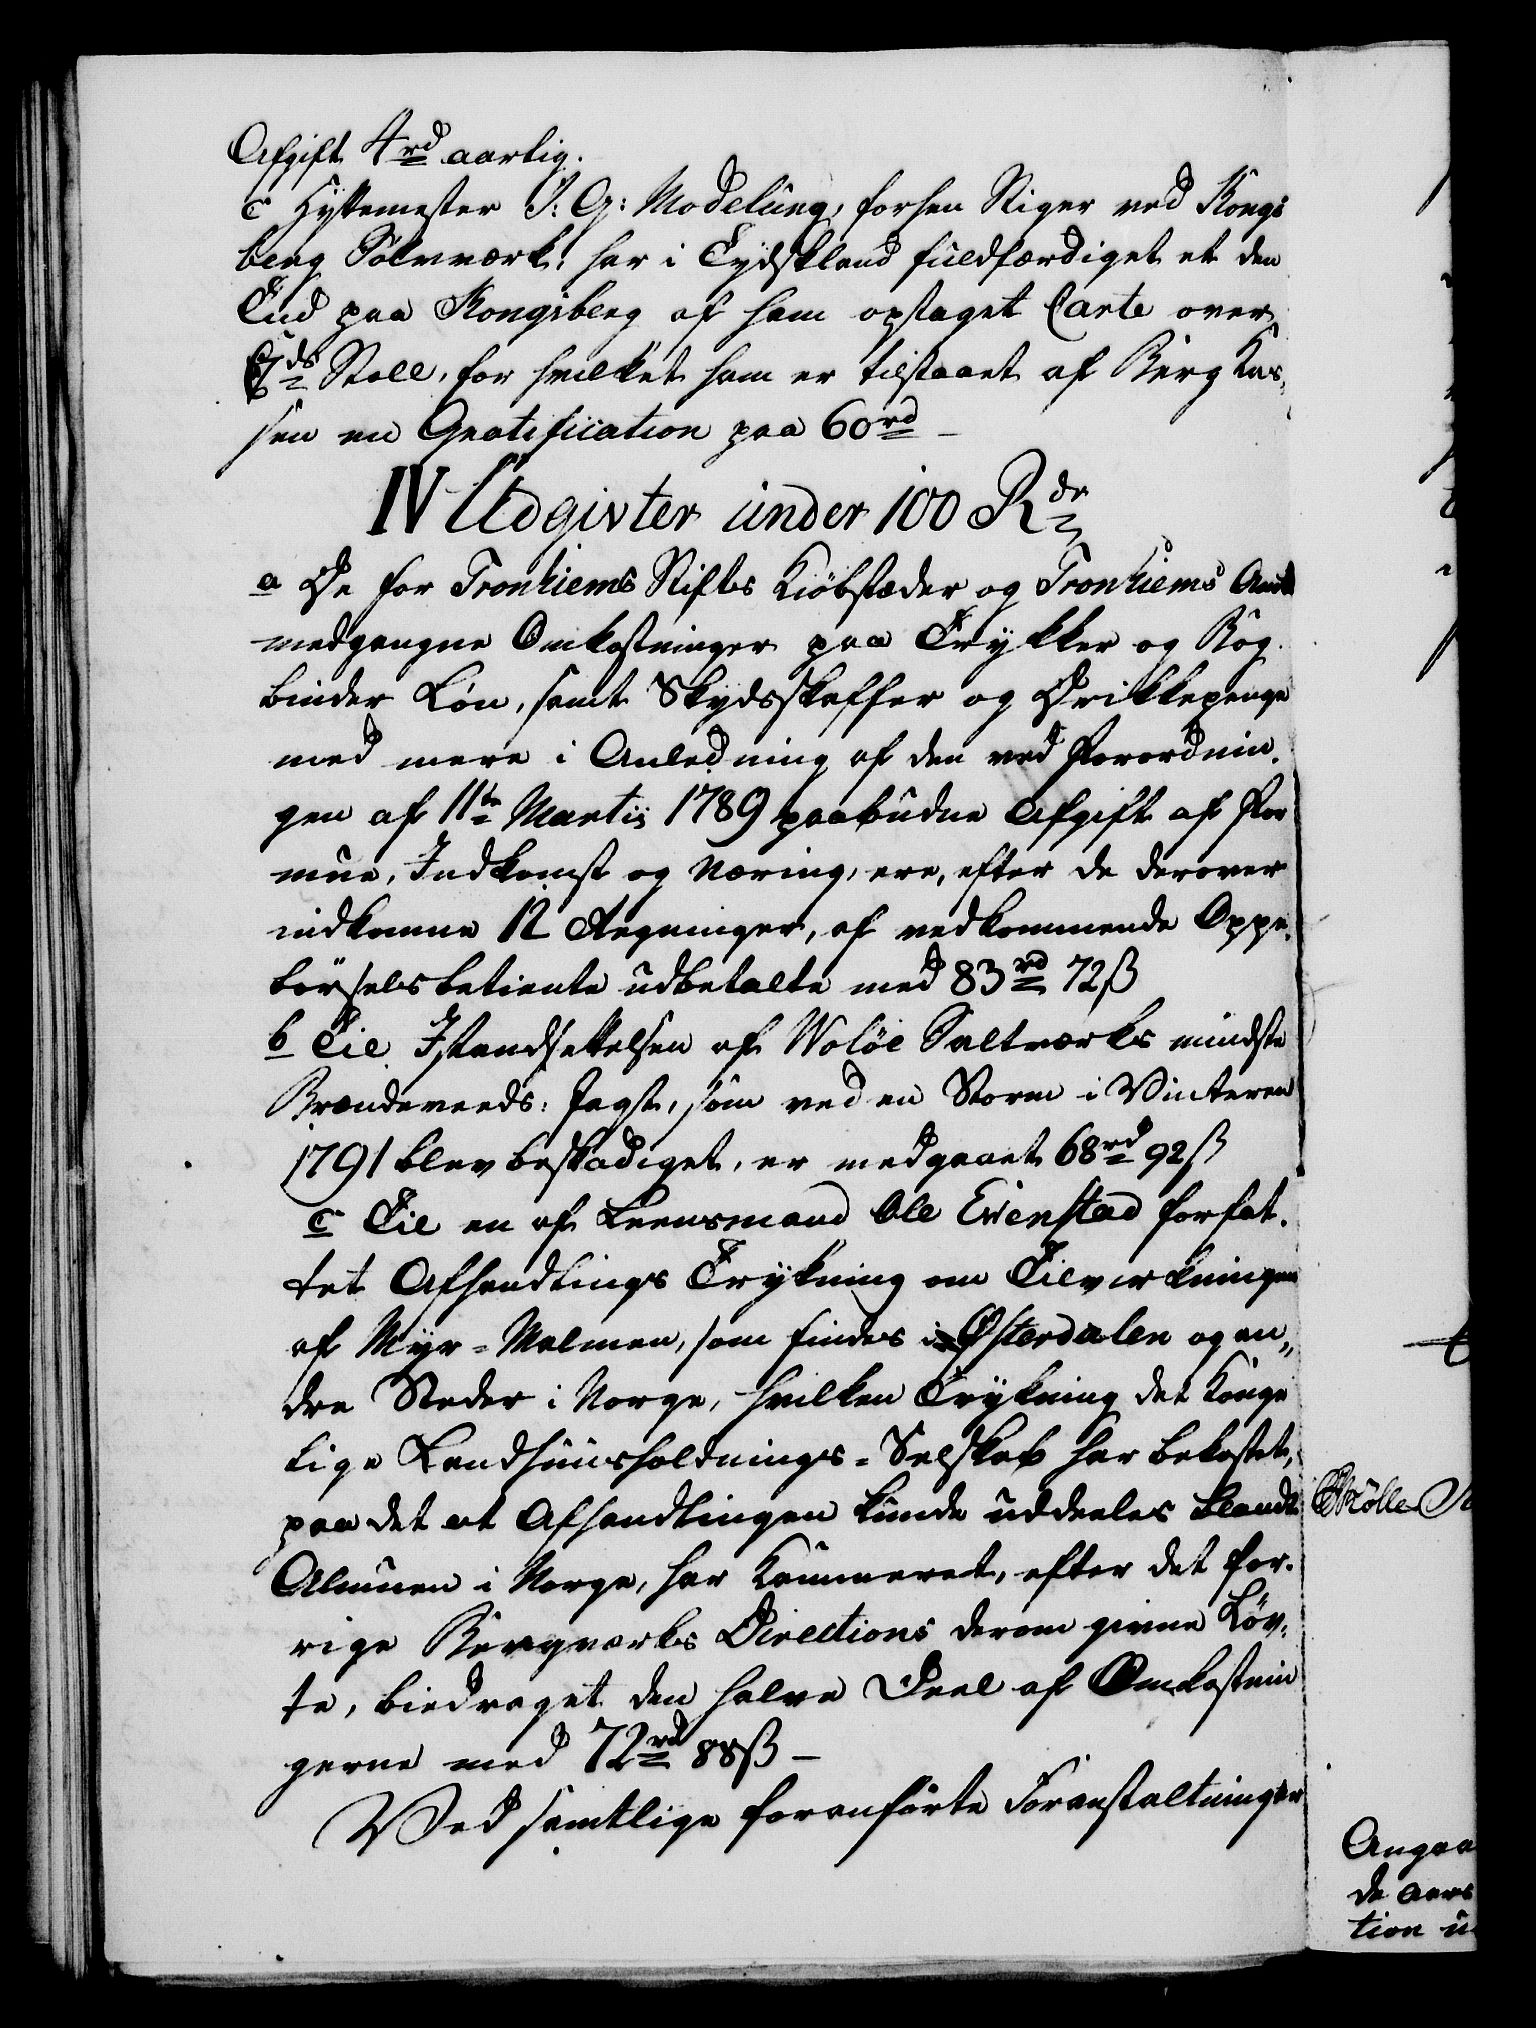 Afgift 4 rd aarlig.
c Hyttemester I: G: Madelung, forhen Stiger ved Kongs
berg Sølvværk, har i Tydskland fuldfærdiget et den
Tid paa Kongsberg af ham optaget Carte over
Stoll, for hvilket ham er tilstaaet af Berg Kas„
sen en Gratification paa 60 rd –
IV Udgivter under 100 Rdr
a De for Tronhiems Stifts Kiøbstæder og Tronhiems Amt
medgangne Omkostninger paa Trykker og Bog
binder Løn, samt Skydsskaffer og Drikkepenge
med mere i Anledning af den ved Forordnin„
gen af 11te Martii 1789 paabudne Afgift af For
mue, Indkomst og Næring, ere, efter de derover
indkomne 12 Regninger, af vedkommende Oppe„
børselsbetiente udbetalte med 83 rd 72 ß
b Til Istandsettelsen af Waløe Saltværks mindste
Brændeveeds: Jagt, som ved en Storm i Vinteren
1791 blev beskadiget, er medgaaet 68 rd 92 ß
c Til en af Leensmand Ole Evenstad forfat„
tet Afhandlings Trykning om Tilvirkningen
af Myr-Malmen, som findes i Østerdalen og an„
dre Steder i Norge, hvilken Trykning det Konge
lige Landhuusholdnings-Selskab har bekostet,
paa det at Afhandlingen kunde uddeeles blandt
Almuen i Norge, har Kammeret, efter det for„
rige Bergværks Directions derom givne Løv„
te, biedraget den halve Deel af Omkostnin
gerne med 72 rd 88 ß –
Ved samtlige foranførte Foranstaltninger
Angaa
de aars
tion u